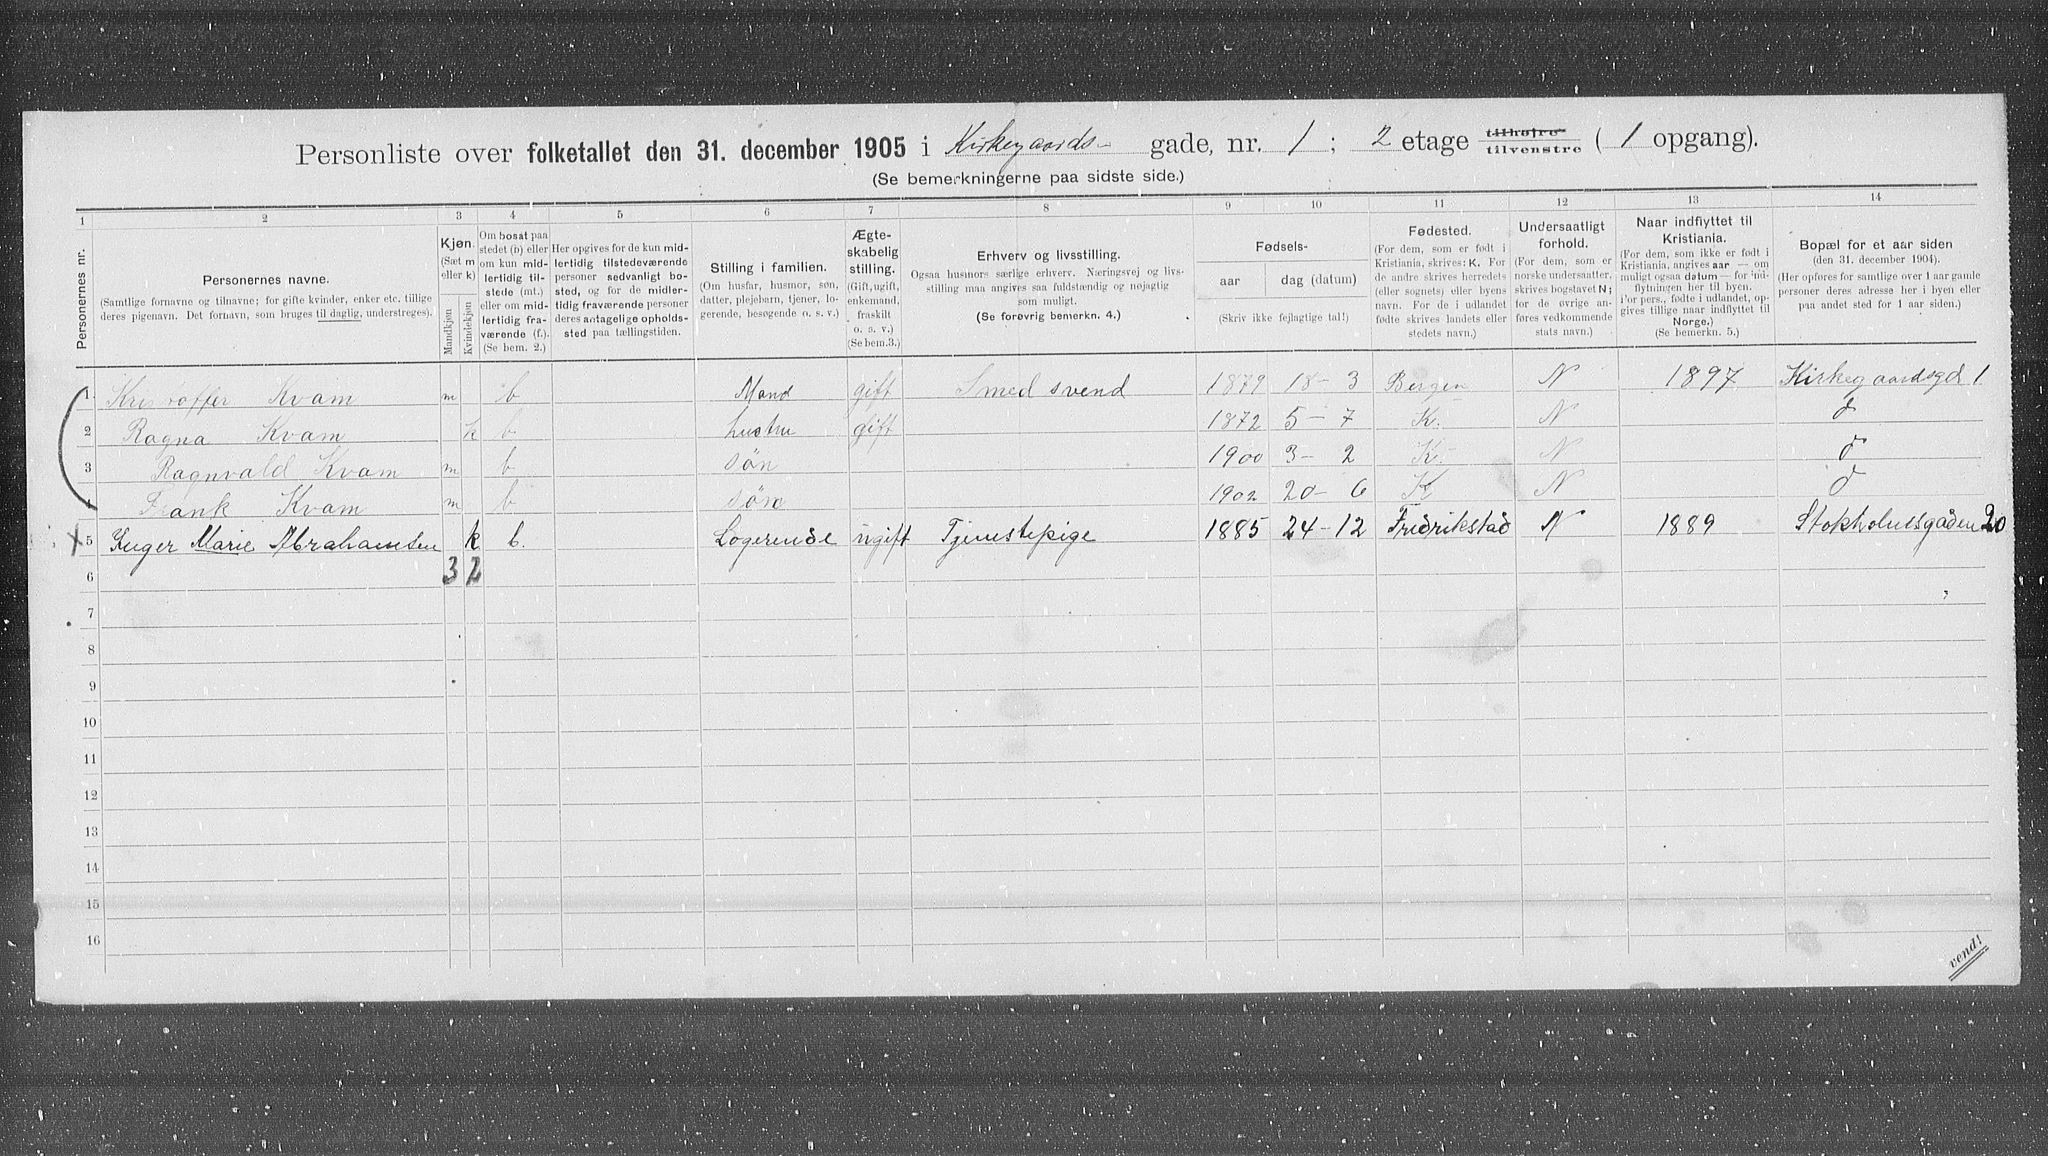 Personliste over folketallet den 31. december 1905 i Kirkegaards- gade, nr. 1; 2 etage tilhøjre tilvenstre (1 opgang).
(Se bemerkningerne paa sidste side.)
1 2 3 4 5 6 7 8 9 10 11 12 13 14
Personernes nr.
Personernes navne.
(Samtlige fornavne og tilnavne; for gifte kvinder, enker etc. tillige
deres pigenavn. Det fornavn, som bruges til daglig, understreges).
Kjøn.
(Sæt m
eller k)
Mandkjøn
Kvindekjøn
Om bosat paa
stedet (b) eller
om kun mid-
lertidig til-
stede (mt.)
eller om mid-
lertidig fra-
værende (f.).
(Se bem. 2.)
Her opgives for de kun mid-
lertidig tilstedeværende
personer sedvanlig bo-
sted, og for de midler-
tidig fraværende personer
deres antagelige opholds-
sted paa tællingstiden.
Stilling i familien.
(Om husfar, husmor, søn,
datter, plejebarn, tjener, lo-
gerende, besøgende o. s. v.)
Ægte-
skabelig
stilling.
(Gift, ugift,
enkemand,
fraskilt
o. s. v.)
(Se bem.3.)
Erhverv og livsstilling.
Ogsaa husmors særlige erhverv. Næringsvej og livs-
stilling maa angives saa fuldstændig og nøjagtig
som muligt.
(Se forøvrig bemerkn. 4.)
Fødsels-
aar dag (datum)
(Skriv ikke fejlagtige tal!)
Fødested.
(For dem, som er født i
Kristiania, skrives: K. For
de andre skrives herredets
(eller sognets) eller byens
navn. For de i udlandet
fødte skrives landets eller
stedets navn.)
Undersaatligt
forhold.
(For dem, som er
norske undersaatter,
skrives bogstavet N;
for de øvrige an-
føres vedkommende
stats navn.)
Naar indflyttet til
Kristiania.
(For dem, som ikke er født i
Kristiania, angives aar — om
muligt ogsaa datum — for ind-
flytningen her til byen.
For pers., fødte i udlandet, op-
gives tillige naar indflyttet til
Norge.)
(Se bemerkn. 5.)
Bopæl for et aar siden
(den 31. december 1904).
(Her opføres for samtlige over 1 aar gamle
personer deres adresse her i byen eller
paa andet sted for 1 aar siden.)
1 Kristoffer Kvam m b Mand gift Smed svend 1879 18-3 Bergen N 1897 Kirkegaardsgd 1
2 Ragna Kvam k b hustru gift 1872 5-7 K. N do
3 Ragnvald Kvam m b søn 1900 3-2 K. N do
4 Frank Kvam m b søn 1902 20-6 K N do
X 5 Inger Marie Abrahamsen k b. Logerende ugift Tjenstepige 1885 24-12 Fridrikstad N 1889 Stokholmsgaden 20
6 3 2
7
8
9
10
11
12
13
14
15
16
vend!